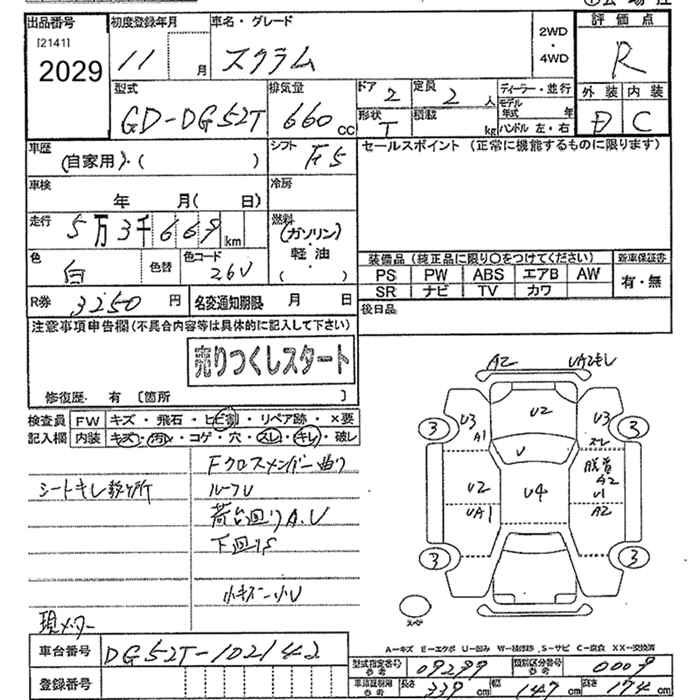 出品番号 初度登録年月 車名・グレード 評価点
[2141]
2029 11 月 スクラム 2WD・4WD R
型式 排気量 ドア 2 定員 2 人 ディーラー・並行 外装 内装
GD-DG52T 660 cc 形状 T 積載 kg モデル年式 年 D C
ハンドル 左・右
車歴 (自家用)・( ) シフト F5 セールスポイント (正常に機能するものに限ります)
車検 年 月( 日) 冷房
走行 5万3千669km 燃料 (ガソリン)
軽・油
( )
色 白 色替 色コード 26U
装備品 (純正品に限り〇をつけてください) 新車保証書
PS PW ABS エアB AW 有・無
SR ナビ TV カワ
R券 3250 円 名変通知期限 月 日 後日品
注意事項申告欄 (不具合内容等は具体的に記入して下さい)
売りつくしスタート
修復歴・有 〔箇所 〕
検査員 FW キズ・飛石・ヒビ割・リペア跡・×要
記入欄 内装 キズ・汚レ・コゲ・穴・スレ・キレ・破レ
Fクロスメンバー曲り
シートキレ数ヶ所 ルーフU
荷台回りA.U
下回りS
小キズ・小U
現メーター
A2 UA2
U3 A1 U2 U3
スレ
3 3
U
U2 U4 A2
U1
UA1 A2
3 3
スペア
A-キズ E-エクボ U-凹み W-補修跡 S-サビ C-腐食 XX-交換済
車台番号 DG52T-102142
登録番号
型式指定番号 参考 09299 類別区分番号 参考 0009
車検証記載 参考 長さ 339 cm 幅 147 cm 高さ 174 cm